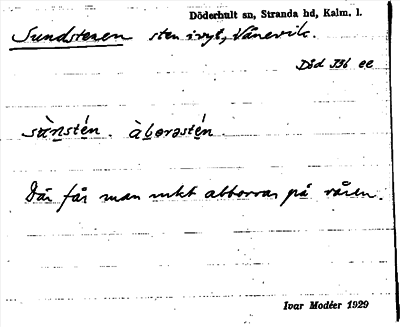 Döderhult sn, Stranda hd, Kalm. l.
Sundstenen sten i vyk, Vånevik.
Död 536 ee
sùnstén. àbərəstén.
Där får man mkt abborrar på våren.
Ivar Modéer 1929